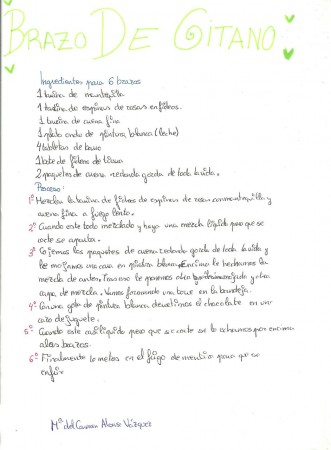 BRAZO DE GITANO
Ingredientes para 6 brazos
1 tarrina de mantequilla
1 tarrina de espinas de rosas en filetes.
1 tarrina de arena fina
1 plato ondo de pintura blanca (leche)
4 tabletas de barro
1 bote de fideos de
2 paquetes de arena redonda gorda de toda la vida.
Proceso:
1º Mezclar la tarrina de de espinas de rosas con mantequilla y
arena fina a fuego lento.
2º Cuando este todo mezclado y haya una mezcla líquida para que se
este se aparta.
3º Cojemos los paquetes de arena redonda gorda de toda la vida y
los mojamos una cara en pintura blanca. Encima le hechamos la
mezcla de antes. Tras eso le ponemos otra y otra
capa de mezcla. Vamos formando una torre en la bandeja.
4º Con una gota de pintura blanca derretimos el chocolate en un
cazo de juguete.
5º Cuando este liquido para que se unte se lo echamos por encima
a los brazos.
6º Finalmente lo metes en el frigo de mentira para que se
enfríe
Mª del Carmen Alonso Vázquez